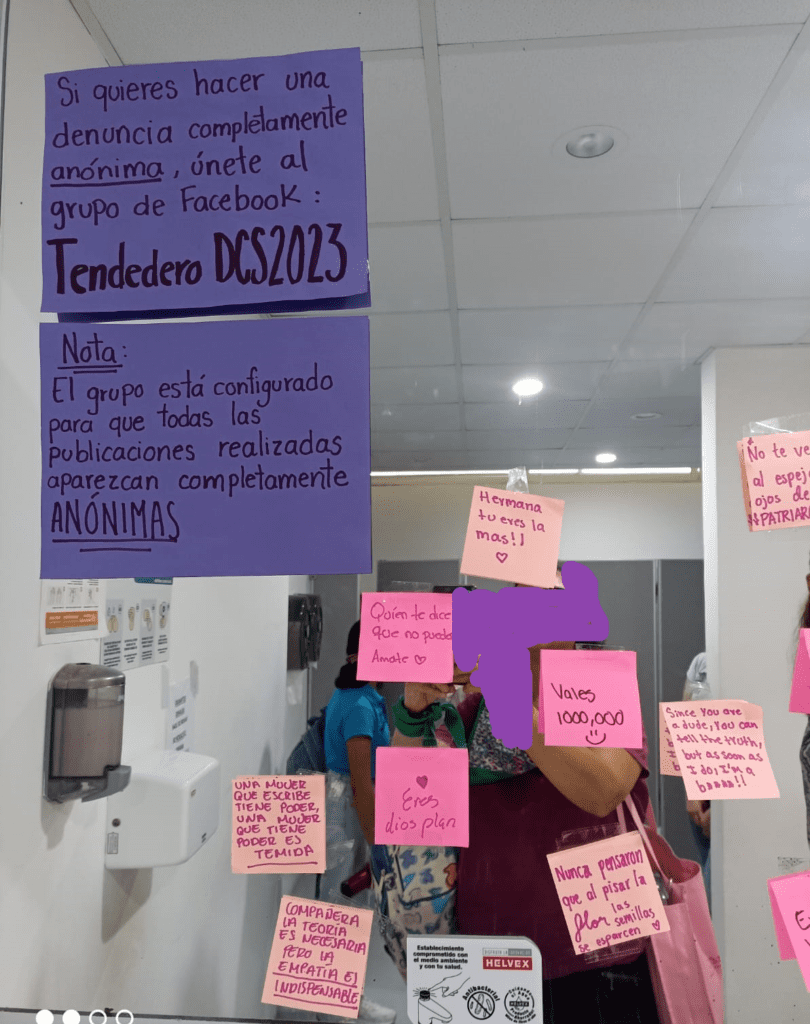 Si quieres hacer una
denuncia completamente
anónima, únete al
grupo de Facebook:
Tendedero DCS2023
Nota:
El grupo está configurado
para que todas las
publicaciones realizadas
aparezcan completamente
ANÓNIMAS
No te
al
ojos
Hermana
tu eres la
mas!!
Quien te dice
que no
Amate
Vales
1000,000
Since You are
a dude, You can
tell the truth,
but as soon as
I do, I'm a
Eres
dios plan
UNA MUJER
QUE ESCRIBE
TIENE PODER,
UNA MUJER
QUE TIENE
PODER ES
TEMIDA
Nunca pensaron
que al pisar la
las
flor semillas
se esparcen
COMPAÑERA
LA TEORÍA
ES NECESARIA
PERO LA
EMPATIA ES
INDISPENSABLE
Establecimiento
comprometido con
el medio ambiente
y con tu salud.
HELVEX
Antibacterial